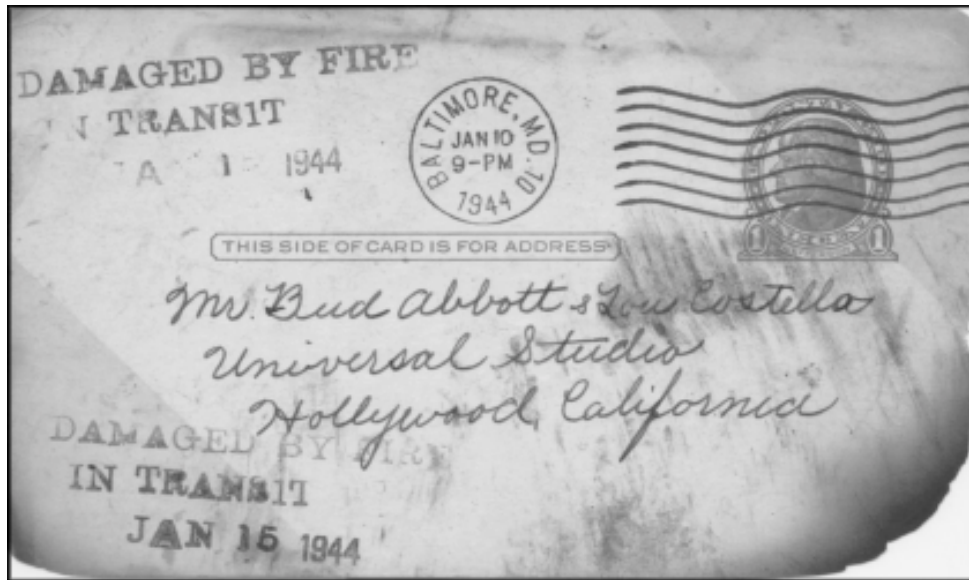 DAMAGED BY FIRE
IN TRANSIT
1 1944
BALTIMORE, MD. 10
JAN 10
9-PM
1944
1 1
THIS SIDE OF CARD IS FOR ADDRESS
Mr. Bud Abbott & Lou Costella
Universal Studio
Hollywood, California
DAMAGED BY FIRE
IN TRANSIT
JAN 15 1944